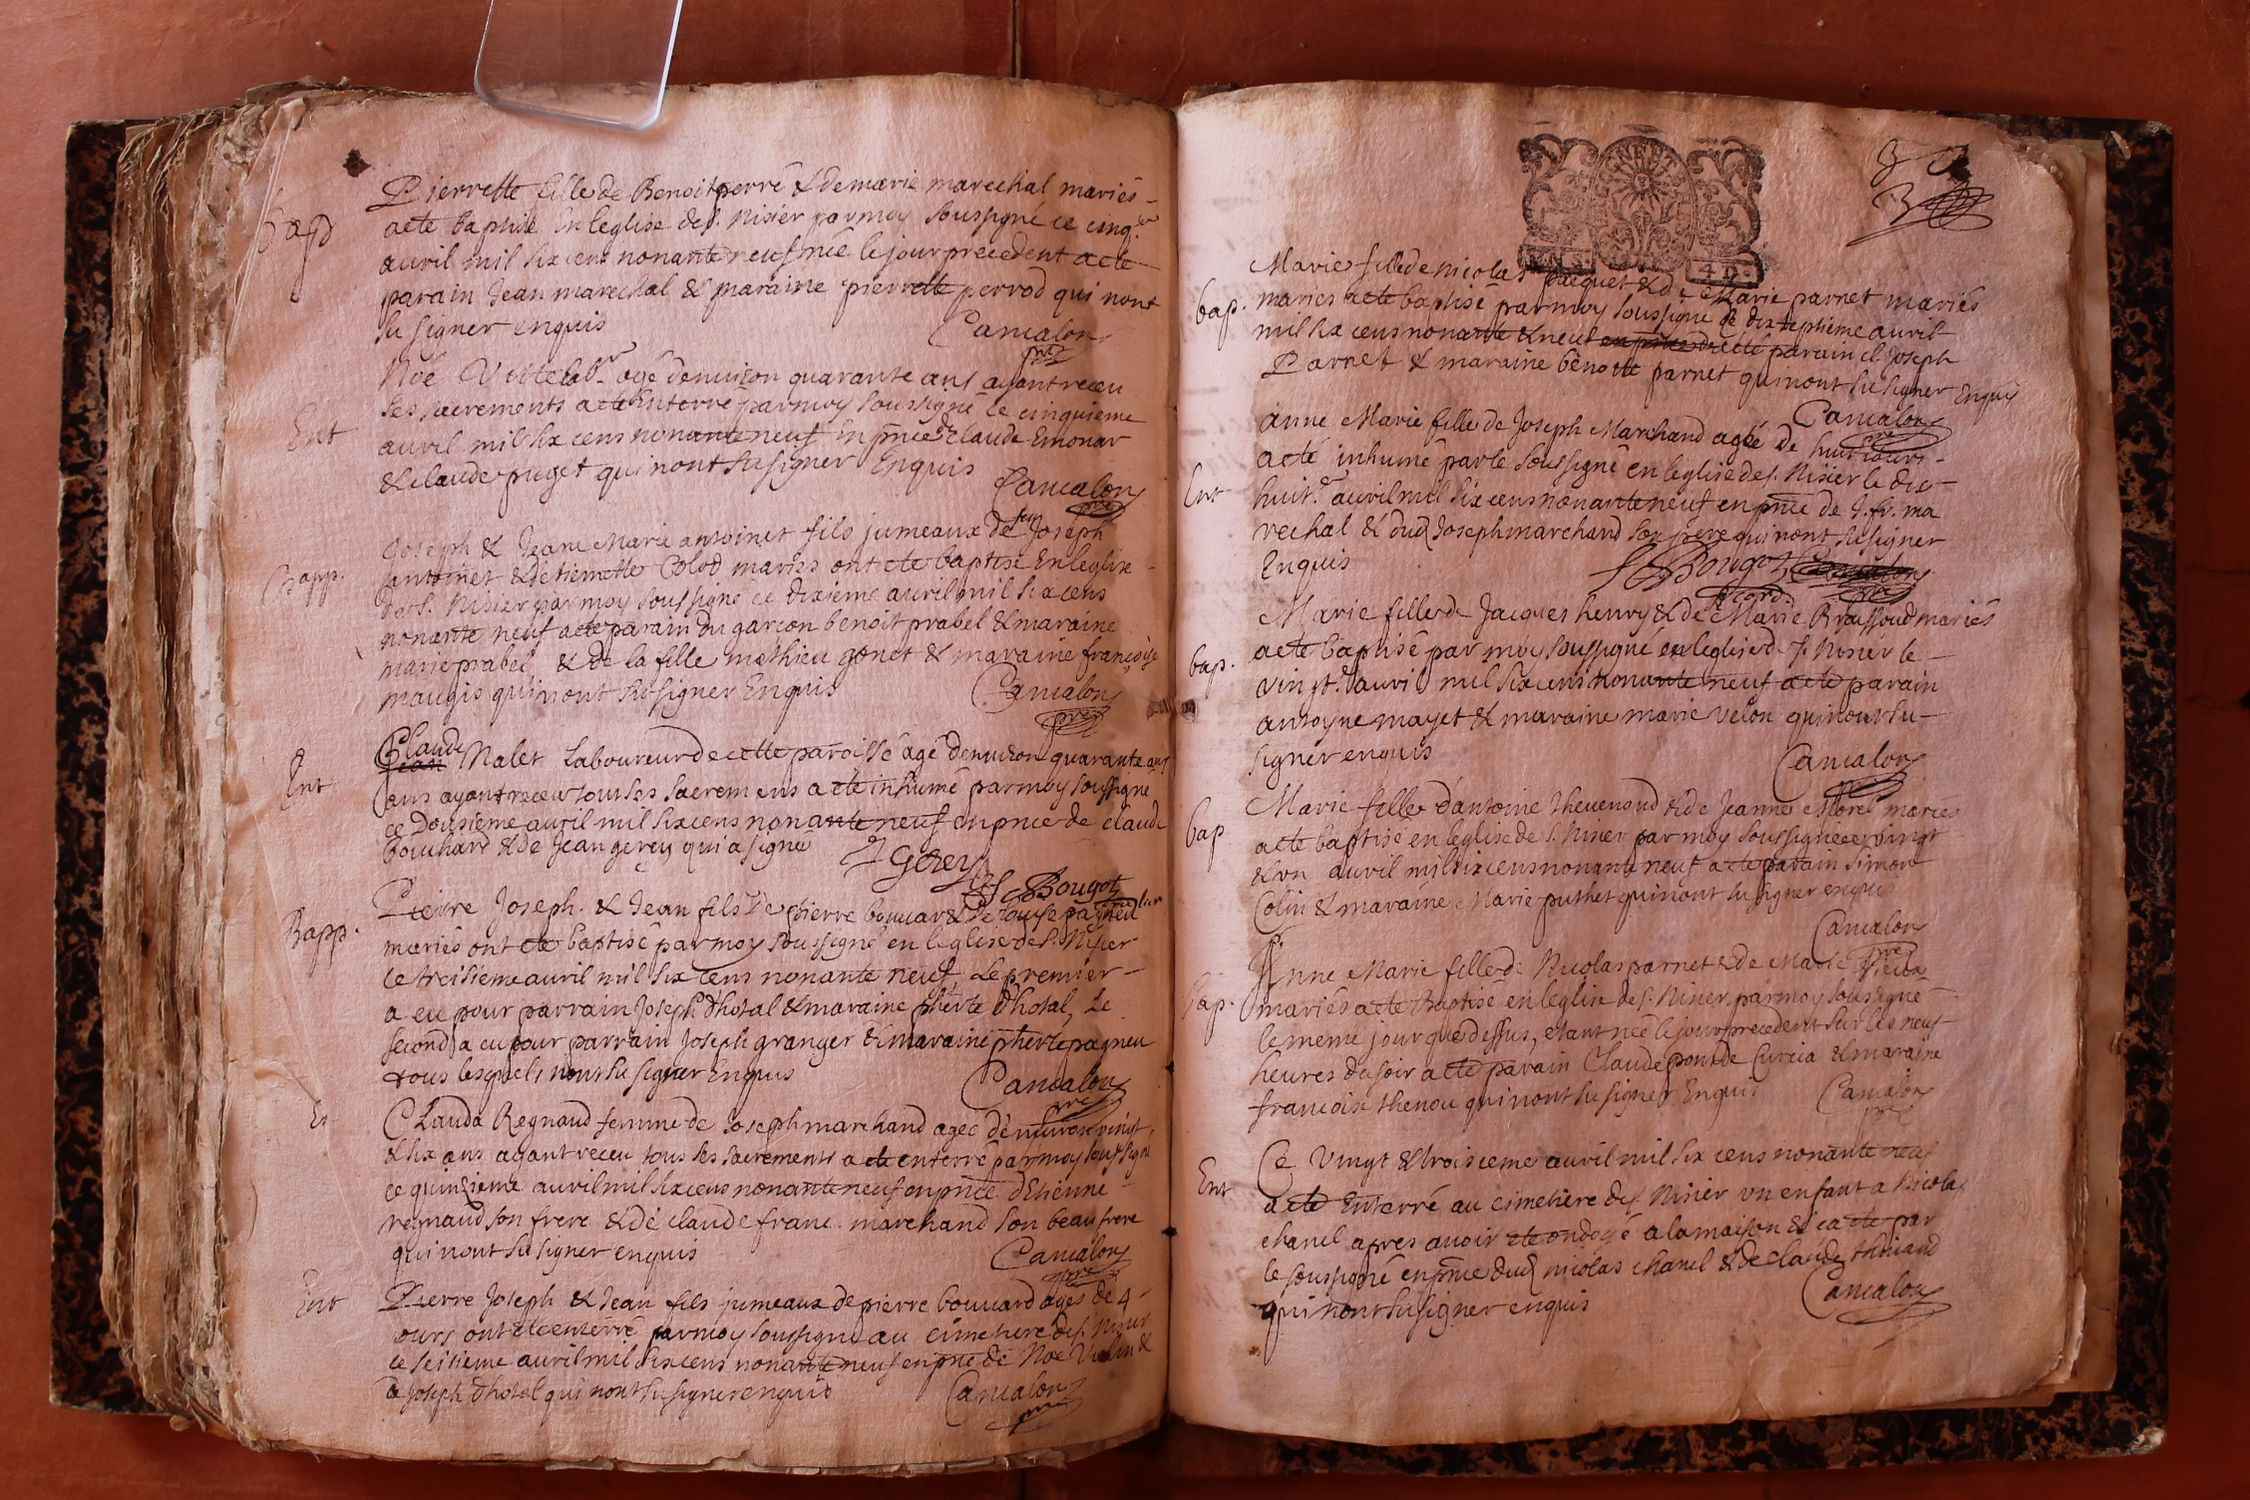 bap
Pierrette fille de Benoit perré & de marie marechal mariés
a eté baptisé En leglise de s. Nisier par moy soussigné ce cinq.e
auril mil six cens nonante neuf née le jour precedent a eté
parain Jean marechal & maraine pierrette perrod qui nont
su signer enquis Camalon
pre
Ent
Noé agé denuiron quarante ans ayant receu
ses sacrements a eté Enterré par moy soussigné le cinquieme
auril mil six cens nonante neuf En pnce de claude Emonar
& claude puget qui nont su signer Enquis
Camalon
pre
Bapp.
Joseph & Jeane Marie antoinet fils jumeaux de feu Joseph
antoinet & detiennette Colod mariés ont eté baptisé En leglise
de s. Nisier par moy soussigné ce dixieme auril mil six cens
nonante neuf a eté parain du garcon benoit prabel & maraine
marie prabel & de la fille mathieu gonet & maraine françoise
maugis qui nont su signer Enquis Camalon
pre
Ent
Claude
Jean Malet Laboureur de cette paroisse agé denuiron quarante ans
ans ayant receu tous ses sacremens a eté inhumé par moy soussigné
ce Dousieme auril mil six cens nonante neuf en pnce de claude
bouchard & de Jean gerey qui a signé J Gerey
Bougot
Bapp.
Pierre Joseph & Jean fils de pierre bouuard & de Louise pagneu
mariés ont eté baptisé par moy soussigné en leglise de s. Nisier
le treisieme auril mil six cens nonante neuf Le premier
a eu pour parrain Joseph d'hotal & maraine pherte d'hotal, Le
second a eu pour parrain Joseph granger & maraine pherte pagneu
tous lesquels nont su signer Enquis Camalon
pre
En
Clauda Regnaud femme de Joseph marchand agée denuiron vingt
& six ans ayant receu tous ses sacrements a eté enterré par moy soussigné
ce quinzieme auril mil six cens nonante neuf en pnce dEtienne
regnaud son frere & de claude franc. marchand son beau frere
qui nont su signer enquis Camalon
pre
Ent
Pierre Joseph & Jean fils jumeaux de pierre bouuard agés de 4
jours ont eté enterré par moy soussigné au cimetiere de s. Nisier
ce seisieme auril mil six cens nonante neuf en pnce de Noé &
de Joseph d'hotal qui nont su signer enquis Camalon
pre
bap.
Marie fille de nicolas pacquet & de Marie parnet mariés
mariés a eté baptisé par moy soussigné le dix septieme auril
mil six cens nonante & neuf a eté parain Joseph
Parnet & maraine benoite parnet qui nont su signer Enquis
Camalon
Ent
Anne Marie fille de Joseph Marchand agée de huit jours
a eté inhumé par le soussigné en leglise de s. Nisier le dix
huit.e auril mil six cens nonante neuf en pnce de J. fr. ma
rechal & dud Joseph marchand son pere qui nont su signer
Enquis Bougot
bap.
Marie fille de Jacques henry & de Marie Braissoud mariés
a eté baptisé par moy soussigné en leglise de s. Nisier le
vingt.e auril mil six cens nonante neuf a eté parain
antoyne mayet & maraine marie velon qui nont su
signer enquis Camalon
bap
Marie fille d'antoine theuenoud & de Jeanne Morel mariés
a eté baptisé en leglise de s. Nisier par moy soussigné ce vingt
& vn auril mil six cens nonante neuf a eté parain simon
Colin & maraine Marie puthet qui nont su signer enquis
Camalon
pre
bap.
Anne Marie fille de Nicolas parnet & de Marie
mariés a eté Baptisé en leglise de s. Nisier par moy soussigné
le meme jour que dessus, etant née le jour precedent sur les neuf
heures du soir a eté parain Claude pont de Curcia & maraine
francoise thenou qui nont su signer Enquis Camalon
pre
Ent
Ce vingt & troisieme auril mil six cens nonante neuf
a eté Enterré au cimetiere de s. Nisier vn enfant a Nicolas
chanel apres auoir eté ondoyé a la maison & ca eté par
le soussigné en pnce dud nicolas chanel & de claude
qui nont su signer enquis Camalon